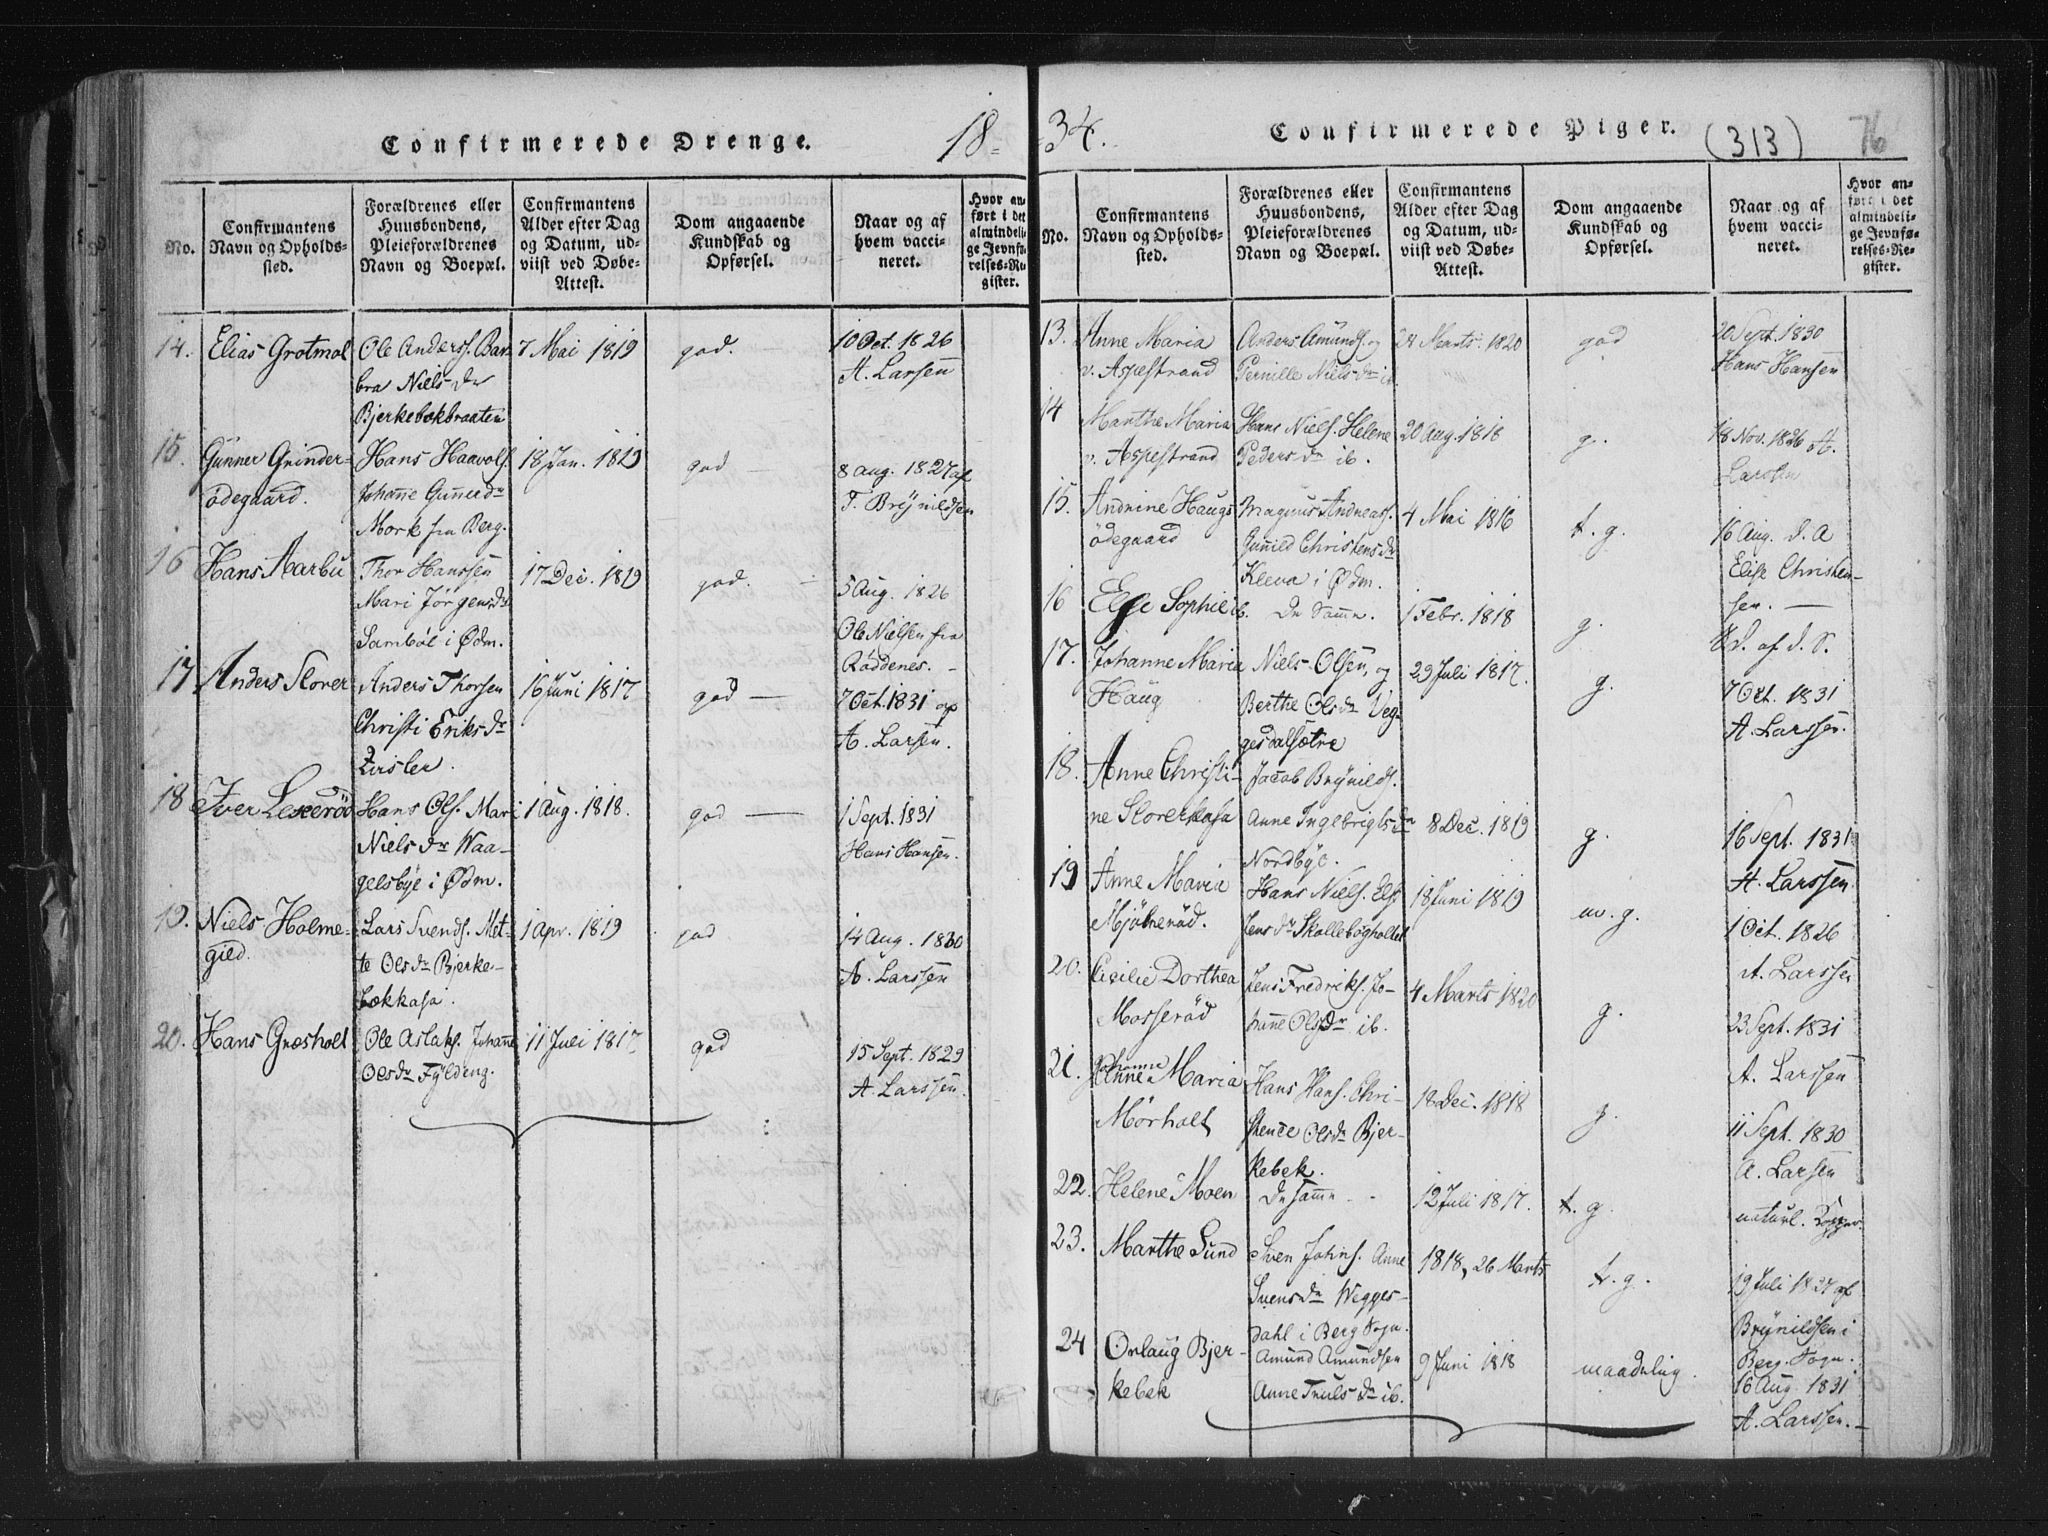 Confirmerede Drenge.
18
No.
Confirmantens
Navn og Opholds-
sted.
Forældrenes eller
Huusbondens,
Pleieforældrenes
Navn og Boepæl.
Confirmantens
Alder efter Dag
og Datum, ud-
viist ved Døbe-
Attest.
Dom angaaende
Kundskab og
Opførsel.
Naar og af
hvem vacci-
neret.
Hvor an-
ført i det
almindeli-
ge Jevnfø-
relses-Re-
gister.
14.
Elias Grotmol
Ole Anderss. Bar-
bra Niels Dr
Bjerkebækbraaten
7 Mai 1819
god.
10 Oct. 1826
A. Larsen
15.
Gunner Grinder-
ödegaard.
Hans Haavols.
Johanne Gunerdr
Mork fra Berg.
18 Jan. 1819
god —
8 aug. 1827 af
T. Brynildsen
16
Hans Aarbu
Thor Hanssen
Mari Jörgensdr
Samböl i Ødm.
17 Dec. 1819
god.
5 Aug. 1826
Ole Nielsen fra
Röddenes. -
17
Anders Slorer
Anders Thorsen
Christi Eriksdr
16 Juni 1817
god —
7 Oct. 1831 af
A. Larsen.
18
Iver Lexeröd
Hans Ols. Mari
Niels Dr Waa-
gelsbye i Ødm.
1 Aug. 1818.
god —
1 Sept. 1831
Hans Hansen.
19.
Niels Holme-
gied.
Lars Svends. Met-
te Olsdr Bjerke-
bækkasa.
1 Apr. 1819
god
14 Aug. 1830
A. Larssen
20.
Hans Græsholt
Ole Aslaks. Johanne
Olsdr Fyldeng.
11 Juli 1817
god
15 Sept. 1829
A. Larssen.
34.
Confirmerede Piger.
(313)
76
No.
Confirmantens
Navn og Opholds-
sted.
Forældrenes eller
Huusbondens,
Pleieforældrenes
Navn og Boepæl.
Confirmantens
Alder efter Dag
og Datum, ud-
viist ved Døbe-
Attest.
Dom angaaende
Kundskab og
Opførsel.
Naar og af
hvem vacci-
neret.
Hvor an-
ført i det
almindeli-
ge Jevnfø-
relses-Re-
gister.
13.
Anne Maria
v. Aspestrand
Anders Amunds. og
Pernille Niels Dr ib.
Marts. 1820
god
20 Sept. 1830
Hans Hansen
14
Marthe Maria
v. Aspestrand
Hans Niels. Helene
Peders Dr ib.
20 Aug. 1818
g.
18 Nov. 1826 A.
Larsen
15.
Andrine Haugs-
ödegaard
Magnus Andreass.
Gunild Christensdr
Kleva i Ødm.
4 Mai 1816
t. g.
16 Aug. d. A
Elise Christen-
sen. —
16
Else Sophie ib.
De samme.
1 Febr. 1818
g.
d. af d. S.
17.
Johanne Maria
Haug
Niels Olsen, og
Berthe Olsdr Veg-
gesdalsætre
29 Juli 1817.
g.
7 Oct. 1831
A. Larssen.
18.
Anne Christi-
ne Slorerkasa
Jacob Brynilds.
Anne Ingebrigtsdr
Nordbye.
8 Dec. 1819
g.
16 Sept. 1831
A. Larssen.
19
Anne Maria
Mjölneröd.
Hans Niels. Els.
Jensdr Skollebogholtet
18 Juni 1819
m. g.
1 Oct. 1826
A. Larssen
20.
Cicilie Dorthea
Mosseröd
Jens Fredriks. Jo-
hanne Olsdr ib.
4 Marts 1820
g.
23 Sept. 1831
A. Larssen
21.
Johanne
Maria
Mörholt
Hans Hans. Chri-
stence Olsdr Bjer-
kebek.
18 Dec. 1818
g.
11 Sept. 1830
A. Larsen
22.
Helene Moen
De samme
12 Juli 1817.
t. g.
naturl. Kopper.
23.
Marthe Lund
Sven Johns. Anne
Svensdr Wegges-
dahl i Berg Sogn.
1818, 26 Marts
t. g.
19 Juli 1827 af
Brynildsen i
Berg Sogn.
24
Orlaug Bjer-
kebek
Amund Amundsen
Anne Truls Dr ib.
9 Juni 1818
maadelig.
16 Aug. 1831
A. Larssen.